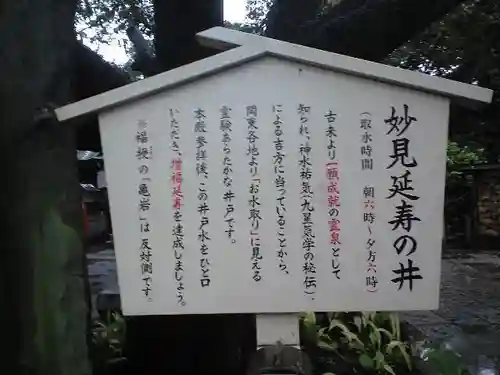 妙見延寿の井
（取水時間　朝六時～夕方六時）
古来より一願成就の霊泉として
知られ、神水祐気（九星気学の秘伝）
による吉方に当っていることから、
関東各地より「お水取り」に見える
霊験あらたかな井戸です。
本殿参拝後、この井戸水をひと口
いただき、増福延寿を達成しましょう。
※福授の「亀岩」は反対側です。